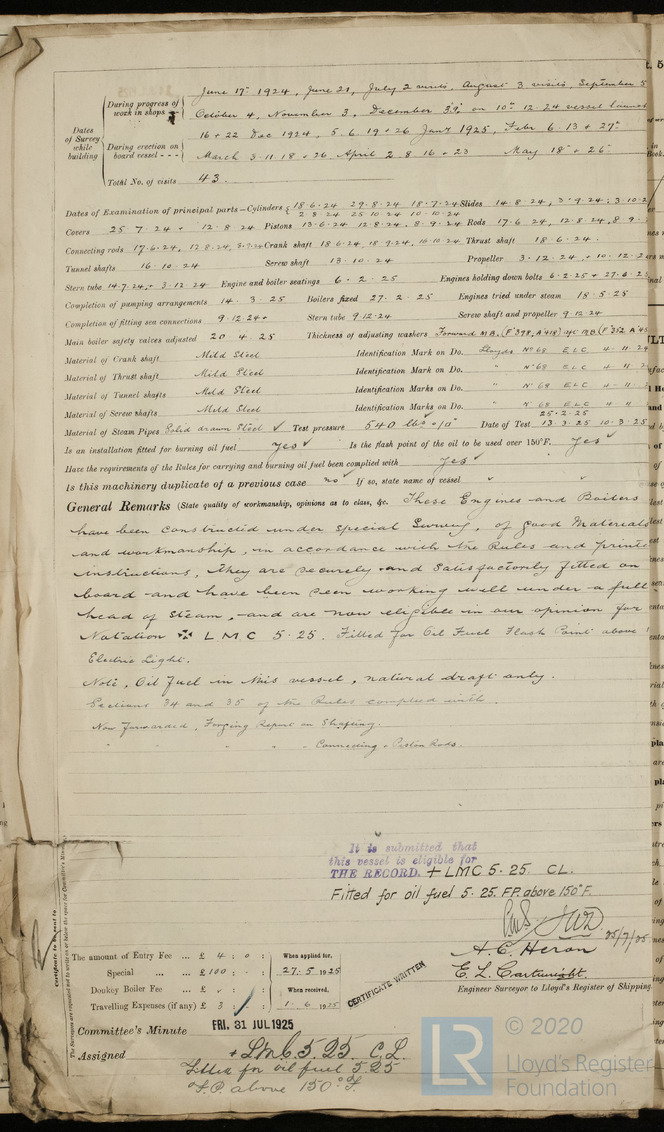 June 17th 1924, June 21, July 2 visits, August 3 visits, September 5
During progress of work in shops - -
October 4, November 3, December 3, 9, on 10th 12.24 vessel launched
Dates of Survey while building
16 + 22 Dec 1924, 5.6.19 + 26 Jany 1925, Febr 6.13 + 27th
During erection on board vessel - - -
March 3.11.18 + 26 April 2.8.16 + 23 May 18 + 26
Total No. of visits 43.
Dates of Examination of principal parts—Cylinders 18.6.24 29.8.24 18.7.24 Slides 14.8.24, 3.9.24, 3.10.2
2.8.24 25.10.24 10.10.24
Covers 25.7.24 + 12.8.24 Pistons 13.6.24 12.8.24, 8.9.24 Rods 17.6.24, 12.8.24, 8.9.
Connecting rods 17.6.24, 12.8.24, 3.9.24 Crank shaft 18.6.24 18.9.24, 10.10.24 Thrust shaft 18.6.24.
Tunnel shafts 16.10.24 Screw shaft 13.10.24 Propeller 3.12.24 + 10.12.2
Stern tube 14.7.24 + 3.12.24 Engine and boiler seatings 6.2.25 Engines holding down bolts 6.2.25 + 27.2.25
Completion of pumping arrangements 14.3.25 Boilers fixed 27.2.25 Engines tried under steam 18.5.25
Completion of fitting sea connections 9.12.24 Stern tube 9.12.24 Screw shaft and propeller 9.12.24
Main boiler safety valves adjusted 20.4.25 Thickness of adjusting washers Forward M.B. (F 3/8, A 4/8)
Material of Crank shaft Mild Steel Identification Mark on Do. Lloyds No 68 E L C 4.11.24
Material of Thrust shaft Mild Steel Identification Mark on Do. " No 68 E L C 4 11 2
Material of Tunnel shafts Mild Steel Identification Marks on Do. " No 68 E L C 4 11
Material of Screw shafts Mild Steel Identification Marks on Do. " No 68 E L C 4 11
25.2.25
Material of Steam Pipes Solid drawn Steel ✓ Test pressure 540 lbs o/o" Date of Test 13.3.25 10.3.25
Is an installation fitted for burning oil fuel Yes ✓ Is the flash point of the oil to be used over 150°F. Yes ✓
Have the requirements of the Rules for carrying and burning oil fuel been complied with Yes ✓
Is this machinery duplicate of a previous case no ✓ If so, state name of vessel
General Remarks (State quality of workmanship, opinions as to class, &c. These Engines and Boilers
have been constructed under Special Survey, of good Materials
and workmanship, in accordance with the Rules and printed
instructions, they are securely and satisfactorily fitted on
board and have been seen working well under a full
head of Steam, and are now eligible in our opinion for
Notation ✠ L M C 5.25. Fitted for Oil Fuel Flash Point above
Electric Light.
Note, Oil fuel in this vessel, natural draft only.
Sections 34 and 35 of the Rules complied with.
Now forwarded, Forging Report on Shafting.
" " " " Connecting + Piston Rods.
It is submitted that
this vessel is eligible for
THE RECORD. + LMC 5.25. CL.
Fitted for oil fuel 5.25. F.P. above 150°F.
25/7/25
The amount of Entry Fee ... £ 4 : 0 : When applied for,
Special ... ... £ 100 : - : 27.5 1925
Donkey Boiler Fee ... £ : : When received,
Travelling Expenses (if any) £ 3 : : 1.6 1925
CERTIFICATE WRITTEN
A. C. Heron
E. L. Cartwright.
Engineer Surveyor to Lloyd's Register of Shipping.
Committee's Minute FRI. 31 JUL 1925
Assigned + LMC 5.25 C.L.
Fitted for oil fuel 5.25
F.P. above 150°F.
© 2020
LR
Lloyd's Register
Foundation